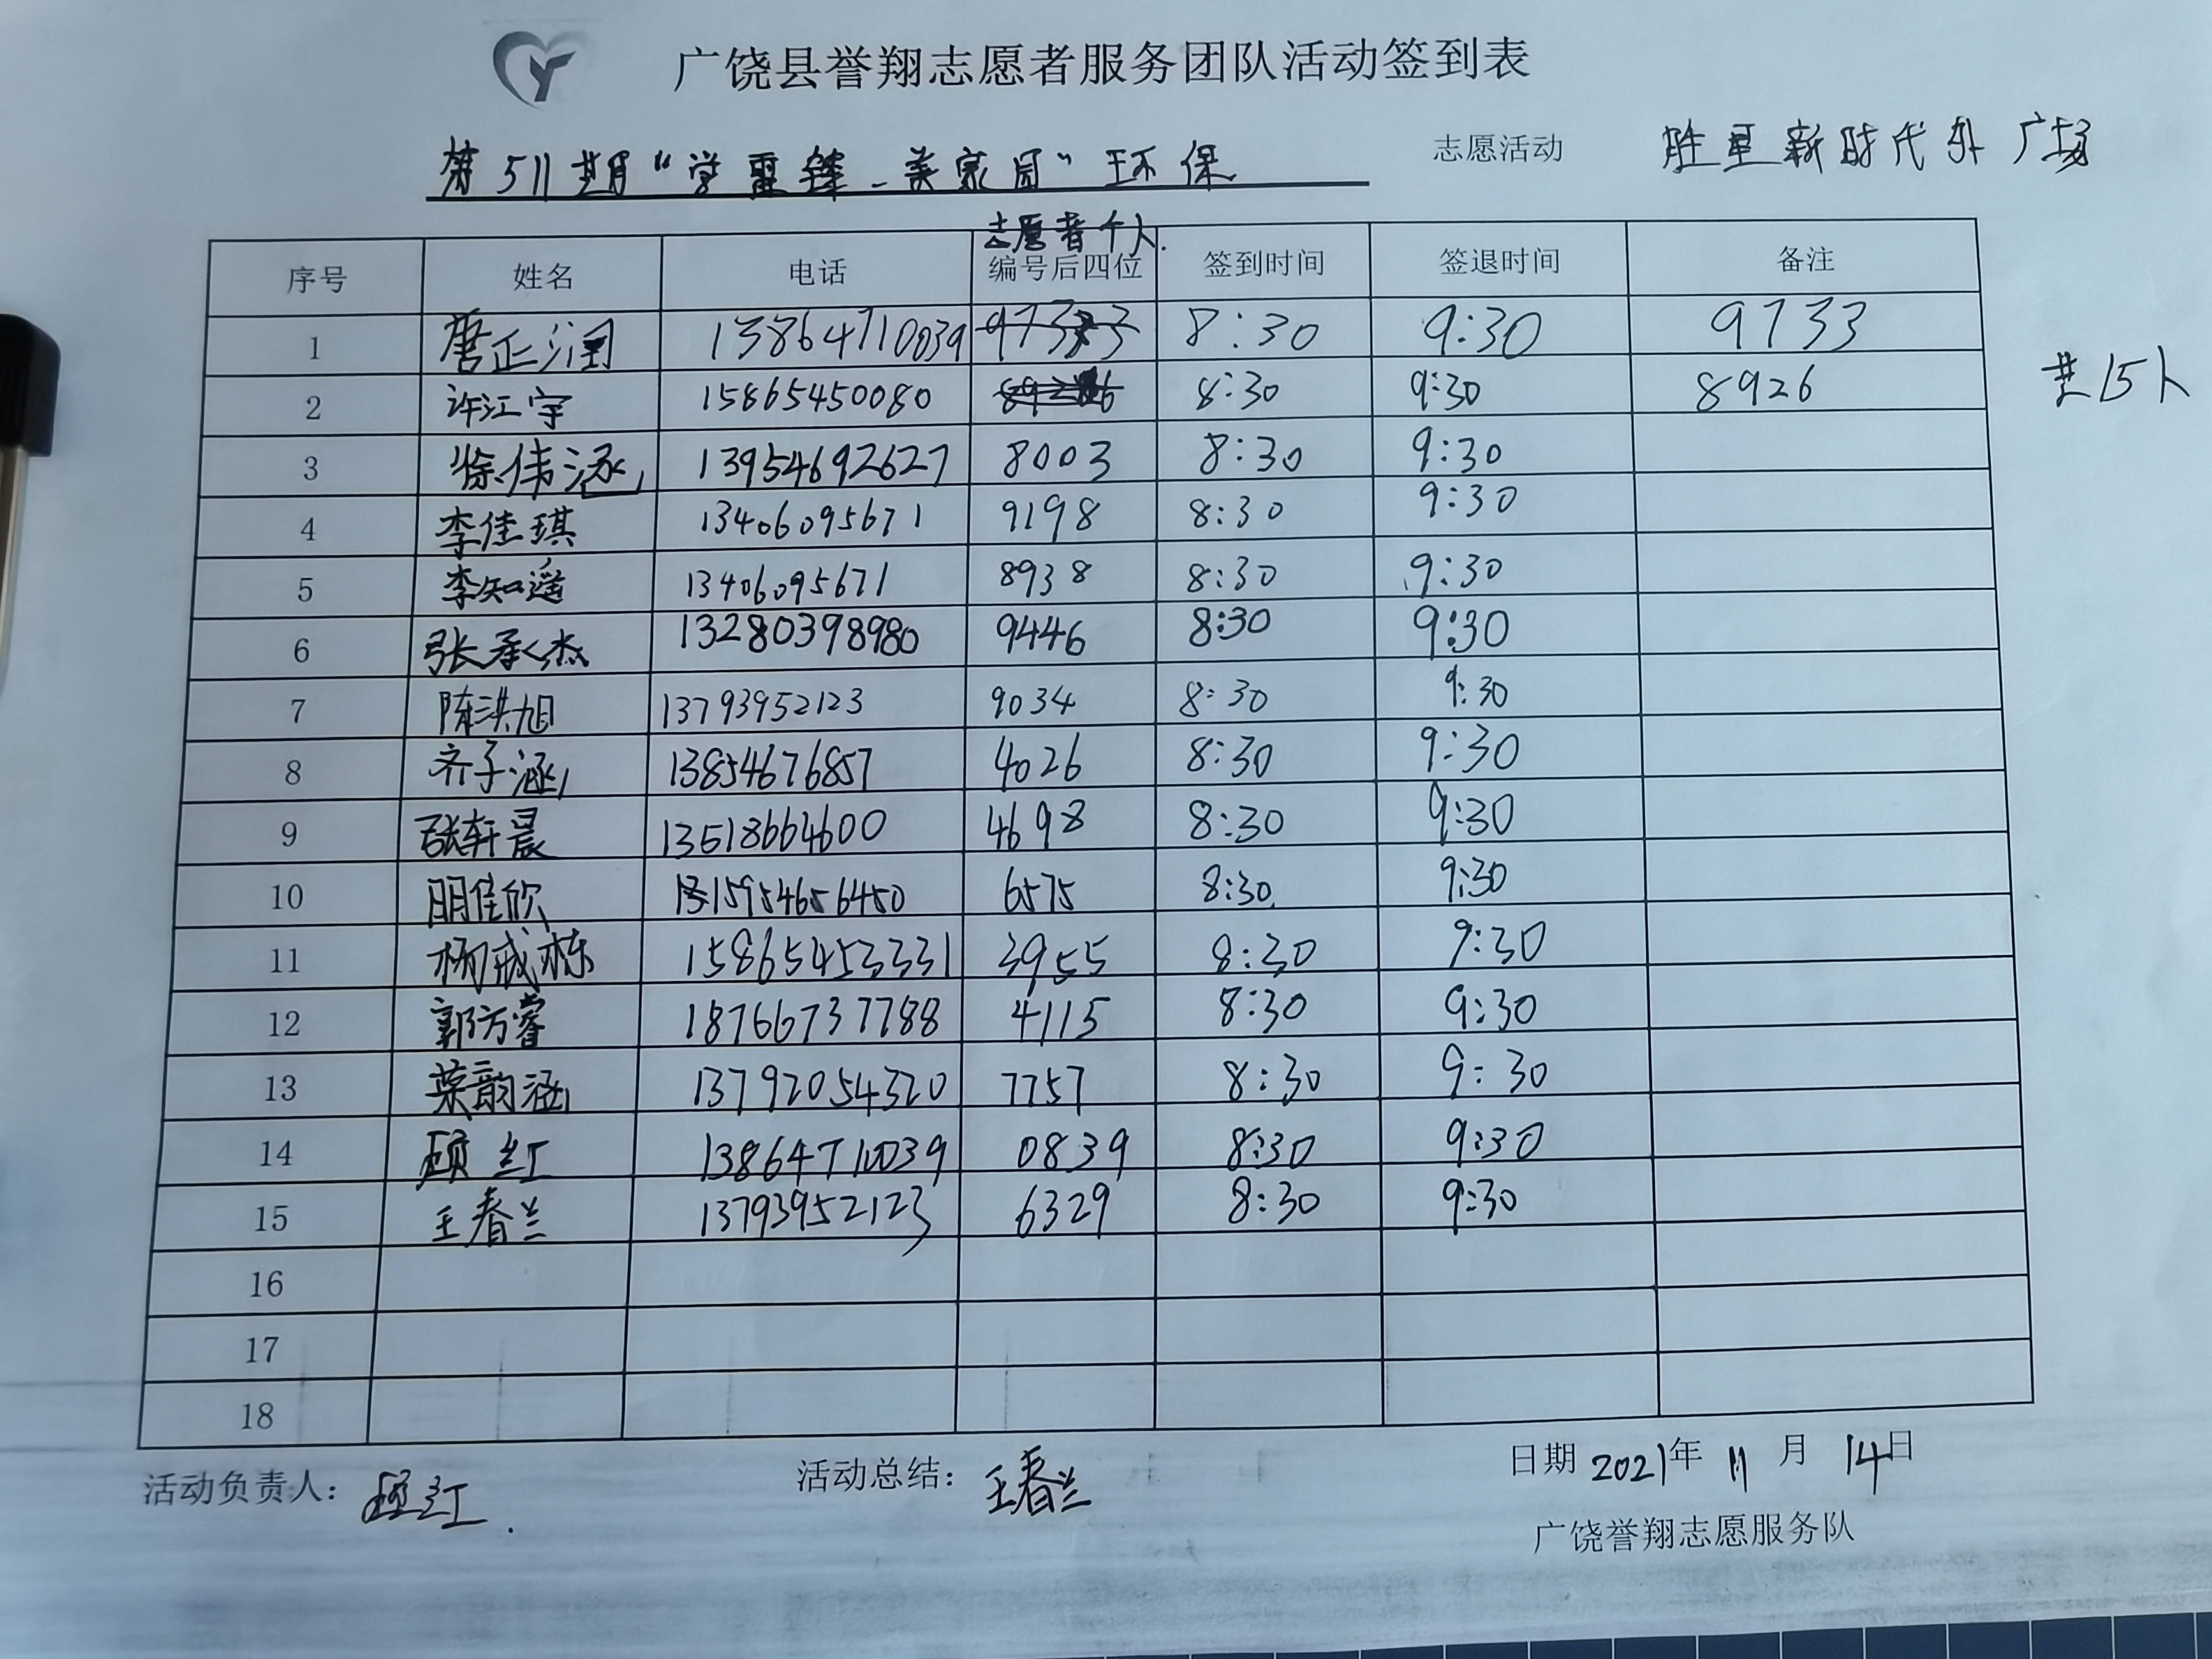 广饶县誉翔志愿者服务团队活动签到表
第511期“学雷锋_美家园”环保 志愿活动 胜星新时代外广场
志愿者个人.
序号 姓名 电话 编号后四位 签到时间 签退时间 备注
1 唐正润 13864710039 8:30 9:30 9733
2 许江宇 15865450080 8:30 9:30 8926
3 徐伟涵 13954692627 8003 8:30 9:30
4 李佳琪 13406095671 9198 8:30 9:30
5 李知遥 13406095671 8938 8:30 9:30
6 张承杰 13280398980 9446 8:30 9:30
7 陈洪旭 13793952123 9034 8:30 9:30
8 齐子涵 13854676857 4026 8:30 9:30
9 张轩晨 13518664600 4698 8:30 9:30
10 明佳欣 15954656450 6575 8:30 9:30
11 杨成栋 15865453331 3955 8:30 9:30
12 郭方睿 18766737788 4115 8:30 9:30
13 荣韵涵 13792054320 7757 8:30 9:30
14 顾红 13864710039 0839 8:30 9:30
15 王春兰 13793952123 6329 8:30 9:30
16
17
18
共15人
活动负责人： 顾红. 活动总结： 王春兰 日期 2021年 11月 14日
广饶誉翔志愿服务队